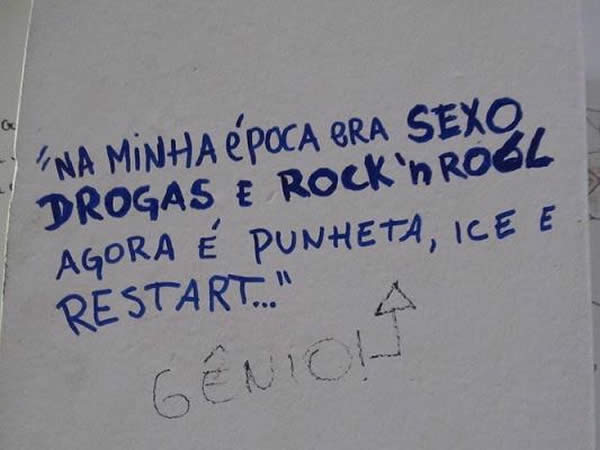 "NA MINHA éPOCA eRA SEXO
DROGAS E ROCK'nROLL
AGORA É PUNHETA, ICE E
RESTART..."
GÊNIO!